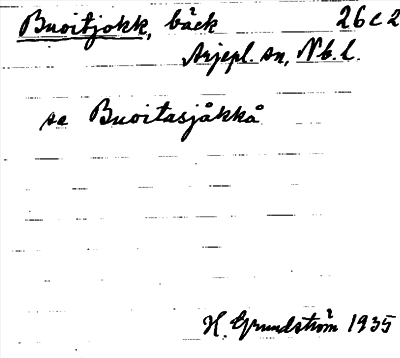 Buoitjokk, bäck 26 C 2
Arjepl. sn, Nb. l.
se Buoitasjåkkå
H. Grundström 1935